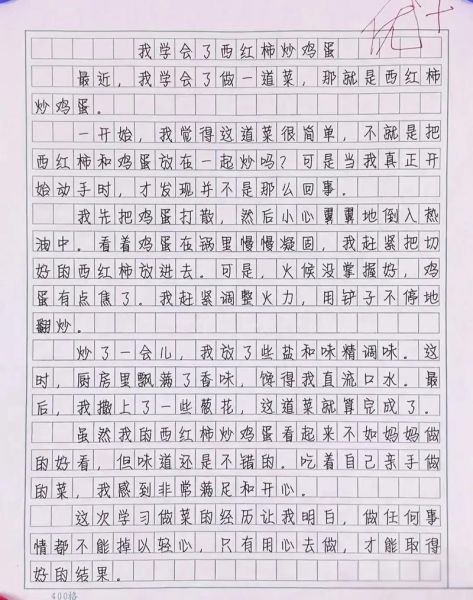 优+
我学会了西红柿炒鸡蛋
最近，我学会了做一道菜，那就是西红柿
炒鸡蛋。
一开始，我觉得这道菜很简单，不就是把
西红柿和鸡蛋放在一起炒吗？可是当我真正开
始动手时，才发现并不是那么回事。
我先把鸡蛋打散，然后小心翼翼地倒入热
油中。看着鸡蛋在锅里慢慢凝固，我赶紧把切
好的西红柿放进去。可是，火候没掌握好，鸡
蛋有点焦了。我赶紧调整火力，用铲子不停地
翻炒。
炒了一会儿，我放了些盐和味精调味。这
时，厨房里飘满了香味，馋得我直流口水。最
后，我撒上了一些葱花，这道菜就算完成了。
虽然我的西红柿炒鸡蛋看起来不如妈妈做
的好看，但味道还是不错的。吃着自己亲手做
的菜，我感到非常满足和开心。
这次学习做菜的经历让我明白，做任何事
情都不能掉以轻心，只有用心去做，才能取得
好的结果。
400格